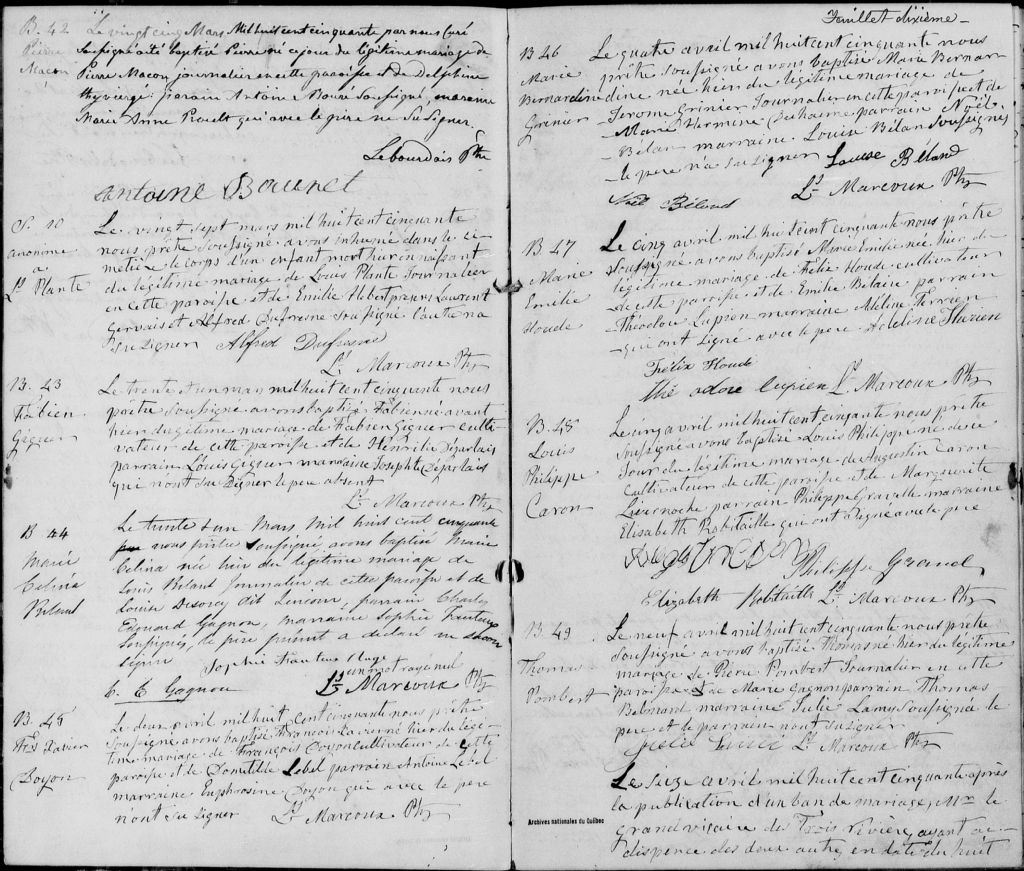 B. 42
Pierre
Macon
Le vingt cinq Mars Mil huit cent cinquante par nous Curé
Soussigné a été baptisé Pierre né ce jour du légitime mariage de
Pierre Macon journalier en cette paroisse et de Delphine
parrain Antoine Soussigné, marraine
Marie Anne qui avec le père ne Su Signer.
Lebourdais Ptre
antoine Bounet
S. 10
anonime
a
Ls Plante
Le vingt sept mars mil huit cent cinquante
nous prêtre Soussigné avons inhumé dans le ci-
metière le corps d'un enfant mort hier en naissant
du légitime mariage de Louis Plante Journalier
en cette paroisse et de Emilie Hebert présens Laurent
Gervais et Alfred Dufresne Soussigné l'autre na
su signer Alfred Dufresne
Ls Marcoux Ptr
B. 43
Fabien
Gigner
Le trente & un mars mil huit cent cinquante nous
prêtre Soussigné avons baptisé Fabien né avant
hier du légitime mariage de Fabien Gigner culti-
vateur de cette paroisse et de
parrain Louis Gigner marraine Josephte
qui n'ont su Signer le père absent
Ls Marcoux Ptr
B 44
Marie
Celina
Biland
Le trente & un Mars Mil huit cent cinquante
nous prêtre Soussigné avons baptisé Marie
Celina née hier du légitime mariage de
Louis Biland Journalier de cette paroisse et de
Louise dit parrain Charles
Edouard Gagnon, marraine Sophie
Soussignés, le père présent a déclaré ne savoir
signer
Sophie
C. E Gagnon
Ls Marcoux Ptr
B. 45
Frs Xavier
Doyon
Le deux avril mil huit cent cinquante nous prêtre
soussigné avons baptisé François Xavier né hier du légi-
time mariage de François Doyon Cultivateur de cette
paroisse et de Domitilde Lebel parrain Antoine Lebel
marraine Euphrosine Doyon qui avec le père
n'ont su signer Ls Marcoux Ptr
Feuillet dixième -
B 46
Marie
Bernardine
Grinier
Le quatre avril mil huit cent cinquante nous
prêtre soussigné avons baptisé Marie Bernar-
dine née hier du légitime mariage de
Jerome Grinier Journalier en cette paroisse et de
Marie Hermine Duhaime parrain Noël
Bélan marraine Louise Bélan Soussignés
le pere n'a su signer Louise Béland
Noël Béland Ls Marcoux Ptr
B. 47
Marie
Emilie
Houde
Le cinq avril mil huit cent cinquante nous prêtre
Soussigné avons baptisé Marie Emilie née hier de
légitime mariage de Felix Houde cultivateur
de cette paroisse et de Emilie parrain
Théodore Lupien marraine Adeline Terrien
qui ont signé avec le pere Adeline Therien
Félix Houde
Thé odore lupien Ls Marcoux Ptr
B. 48
Louis
Philippe
Caron
Le cinq avril mil huit cent cinquante nous prêtre
Soussigné avons baptisé Louis Philippe né de ce
Jour du légitime mariage de Augustin Caron
Cultivateur de cette paroisse et de Marguerite
parrain Philippe marraine
Elisabeth Robitaille qui ont signé avec le pere
Philippe
Elizabeth Robitaille Ls Marcoux Ptr
B. 49
Thomas
Pombert
Le neuf avril mil huit cent cinquante nous prêtre
Soussigné avons baptisé Thomas né hier du légitime
mariage de Pierre Pombert Journalier en cette
paroisse & de Marie Gagnon parrain Thomas
marraine Julie Lamy Soussignée le
pere et le parrain n'ont su signer
Ls Marcoux Ptr
Le seize avril mil huit cent cinquante après
la publication d'un ban de mariage, Mr le
grand vicaire de Trois rivière, ayant ac-
dispence des deux autres en date du huit
Archives nationales du Québec